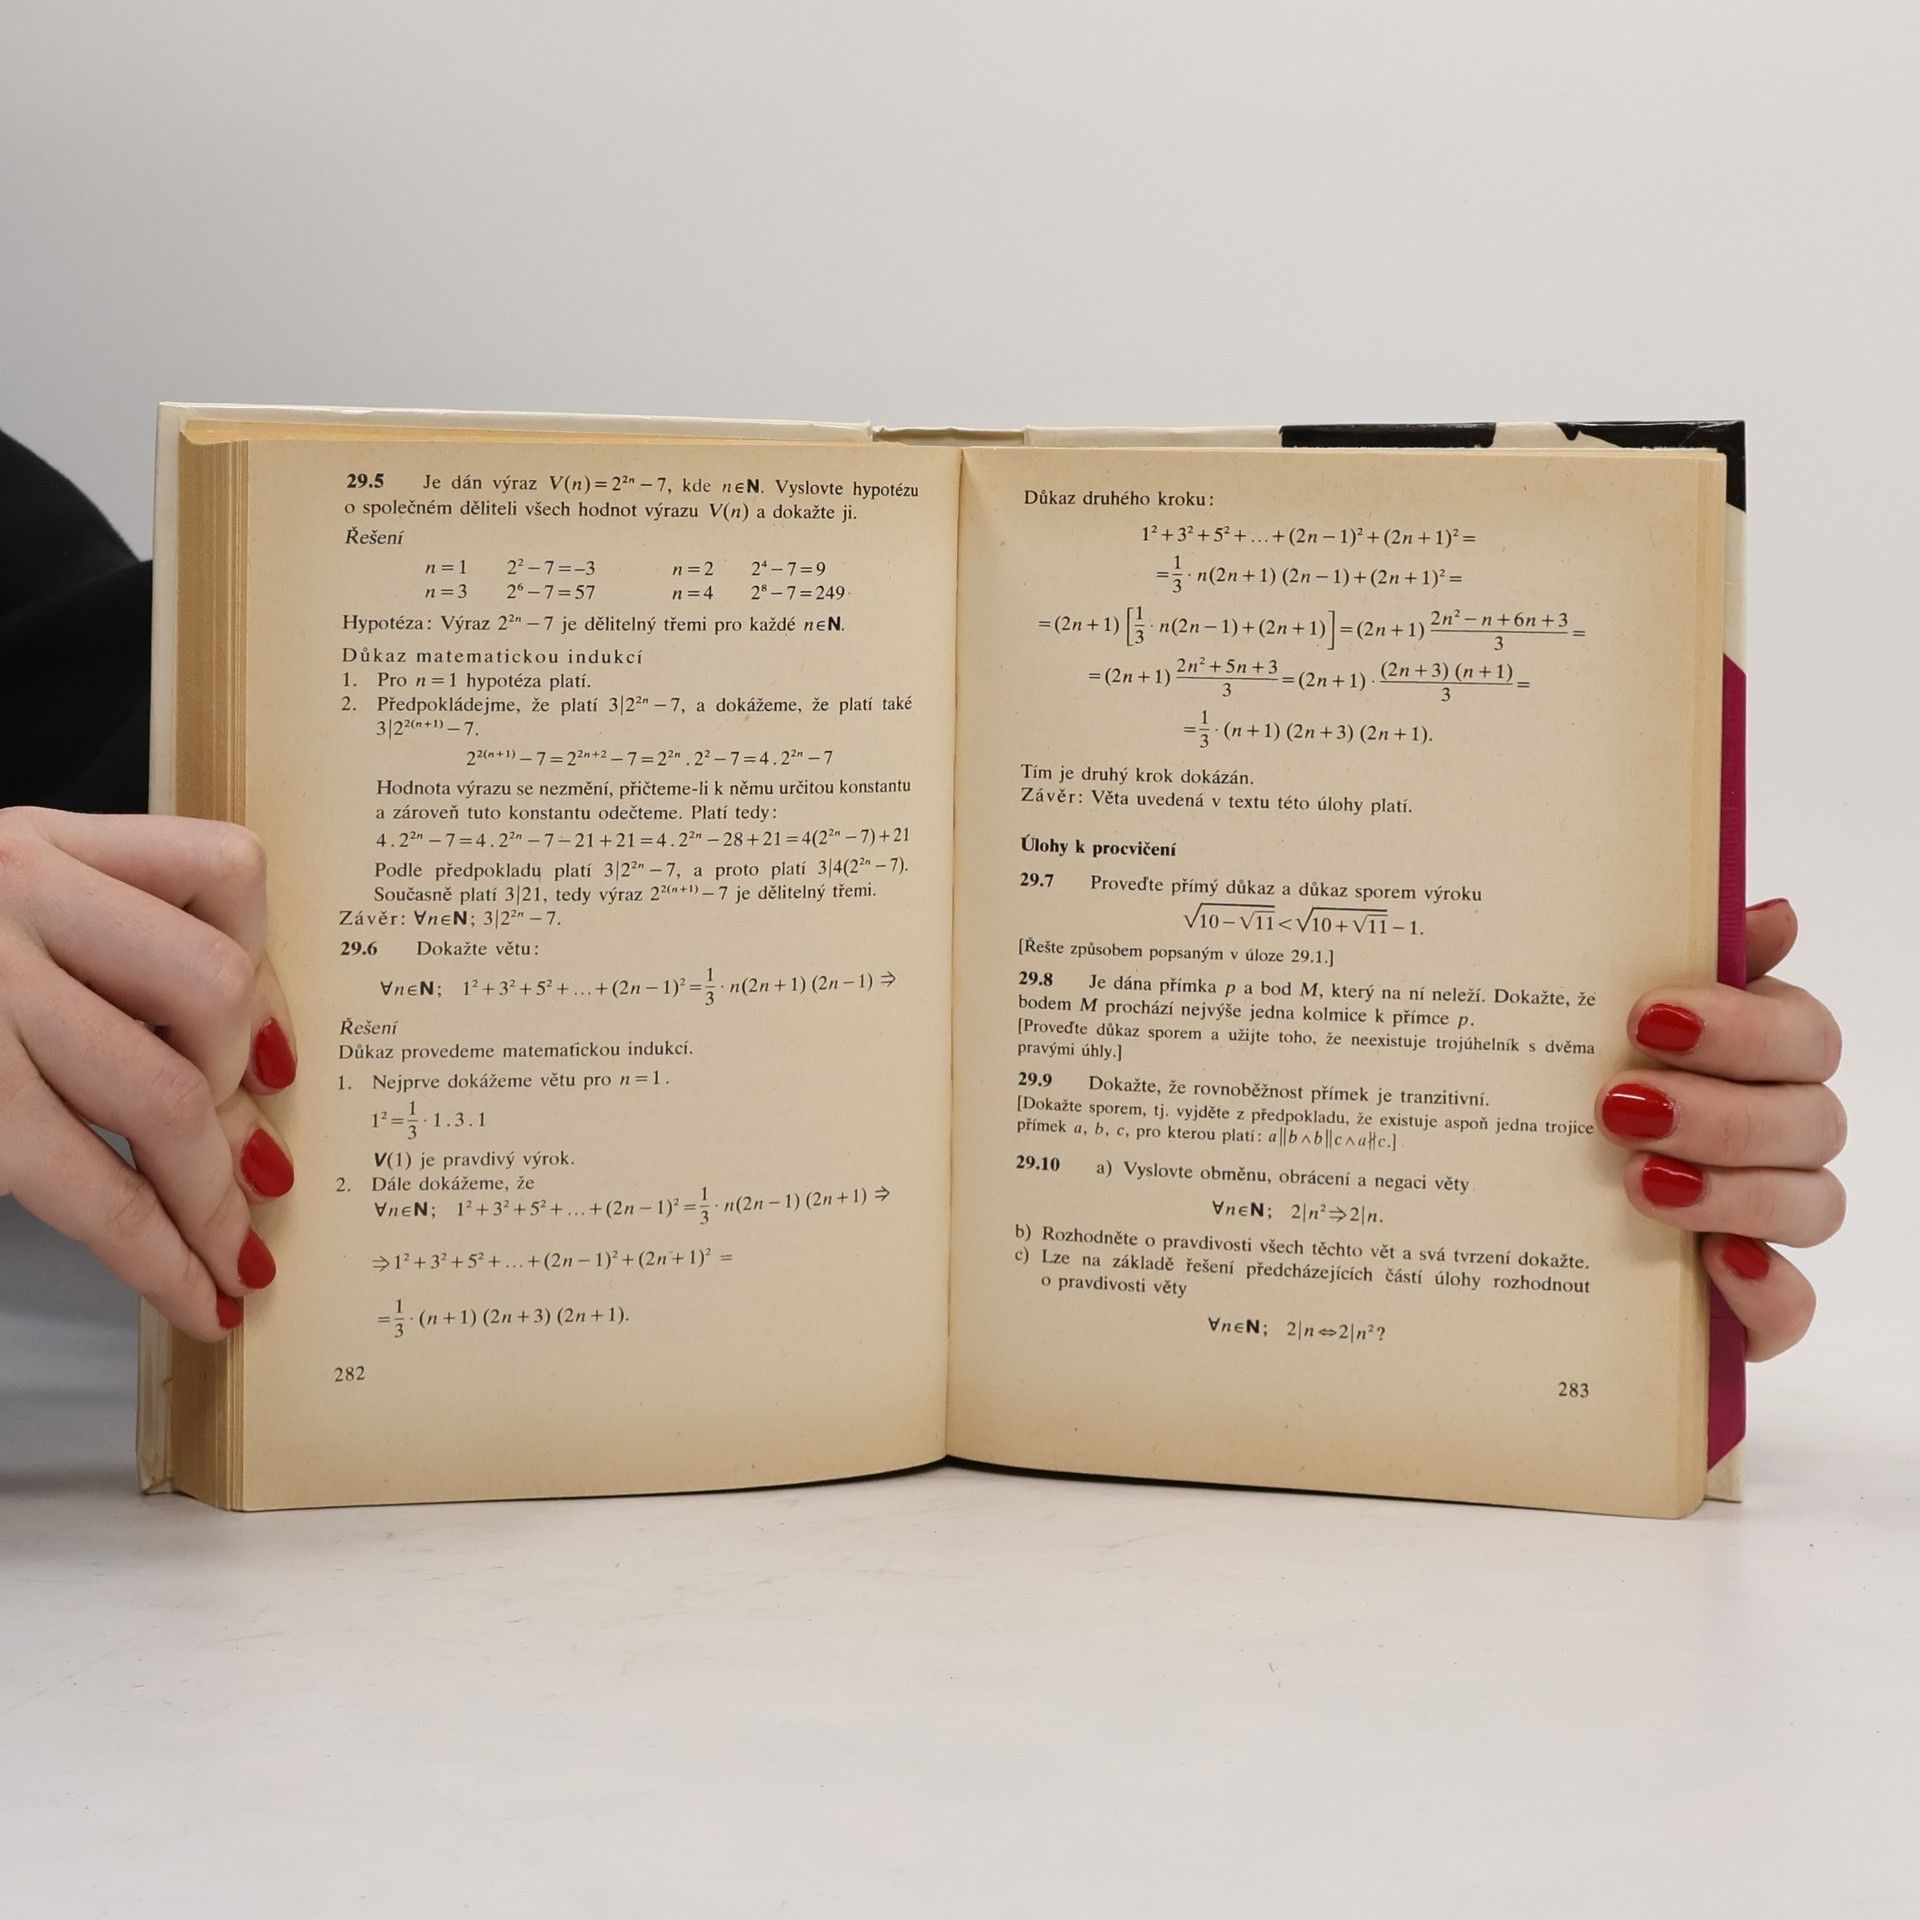 29.5 Je dán výraz V(n)=2²ⁿ−7, kde n∈N. Vyslovte hypotézu
o společném děliteli všech hodnot výrazu V(n) a dokažte ji.
Řešení
n=1 2²−7=−3 n=2 2⁴−7=9
n=3 2⁶−7=57 n=4 2⁸−7=249
Hypotéza: Výraz 2²ⁿ−7 je dělitelný třemi pro každé n∈N.
Důkaz matematickou indukcí
1. Pro n=1 hypotéza platí.
2. Předpokládejme, že platí 3|2²ⁿ−7, a dokážeme, že platí také
3|2²⁽ⁿ⁺¹⁾−7.
2²⁽ⁿ⁺¹⁾−7=2²ⁿ⁺²−7=2²ⁿ.2²−7=4.2²ⁿ−7
Hodnota výrazu se nezmění, přičteme-li k němu určitou konstantu
a zároveň tuto konstantu odečteme. Platí tedy:
4.2²ⁿ−7=4.2²ⁿ−7−21+21=4.2²ⁿ−28+21=4(2²ⁿ−7)+21
Podle předpokladu platí 3|2²ⁿ−7, a proto platí 3|4(2²ⁿ−7).
Současně platí 3|21, tedy výraz 2²⁽ⁿ⁺¹⁾−7 je dělitelný třemi.
Závěr: ∀n∈N; 3|2²ⁿ−7.
29.6 Dokažte větu:
∀n∈N; 1²+3²+5²+…+(2n−1)²=1/3·n(2n+1)(2n−1)⇒
Řešení
Důkaz provedeme matematickou indukcí.
1. Nejprve dokážeme větu pro n=1.
1²=1/3·1.3.1
V(1) je pravdivý výrok.
2. Dále dokážeme, že
∀n∈N; 1²+3²+5²+…+(2n−1)²=1/3·n(2n−1)(2n+1)⇒
⇒1²+3²+5²+…+(2n−1)²+(2n+1)²=
=1/3·(n+1)(2n+3)(2n+1).
282
Důkaz druhého kroku:
1²+3²+5²+…+(2n−1)²+(2n+1)²=
=1/3·n(2n+1)(2n−1)+(2n+1)²=
=(2n+1)[1/3·n(2n−1)+(2n+1)]=(2n+1) (2n²−n+6n+3)/3=
=(2n+1) (2n²+5n+3)/3=(2n+1)·(2n+3)(n+1)/3=
=1/3·(n+1)(2n+3)(2n+1).
Tím je druhý krok dokázán.
Závěr: Věta uvedená v textu této úlohy platí.
Úlohy k procvičení
29.7 Proveďte přímý důkaz a důkaz sporem výroku
√(10−√11)<√(10+√11)−1.
[Řešte způsobem popsaným v úloze 29.1.]
29.8 Je dána přímka p a bod M, který na ní neleží. Dokažte, že
bodem M prochází nejvýše jedna kolmice k přímce p.
[Proveďte důkaz sporem a užijte toho, že neexistuje trojúhelník s dvěma
pravými úhly.]
29.9 Dokažte, že rovnoběžnost přímek je tranzitivní.
[Dokažte sporem, tj. vyjděte z předpokladu, že existuje aspoň jedna trojice
přímek a, b, c, pro kterou platí: a∥b∧b∥c∧a∦c.]
29.10 a) Vyslovte obměnu, obrácení a negaci věty
∀n∈N; 2|n²⇒2|n.
b) Rozhodněte o pravdivosti všech těchto vět a svá tvrzení dokažte.
c) Lze na základě řešení předcházejících částí úlohy rozhodnout
o pravdivosti věty
∀n∈N; 2|n⇔2|n²?
283